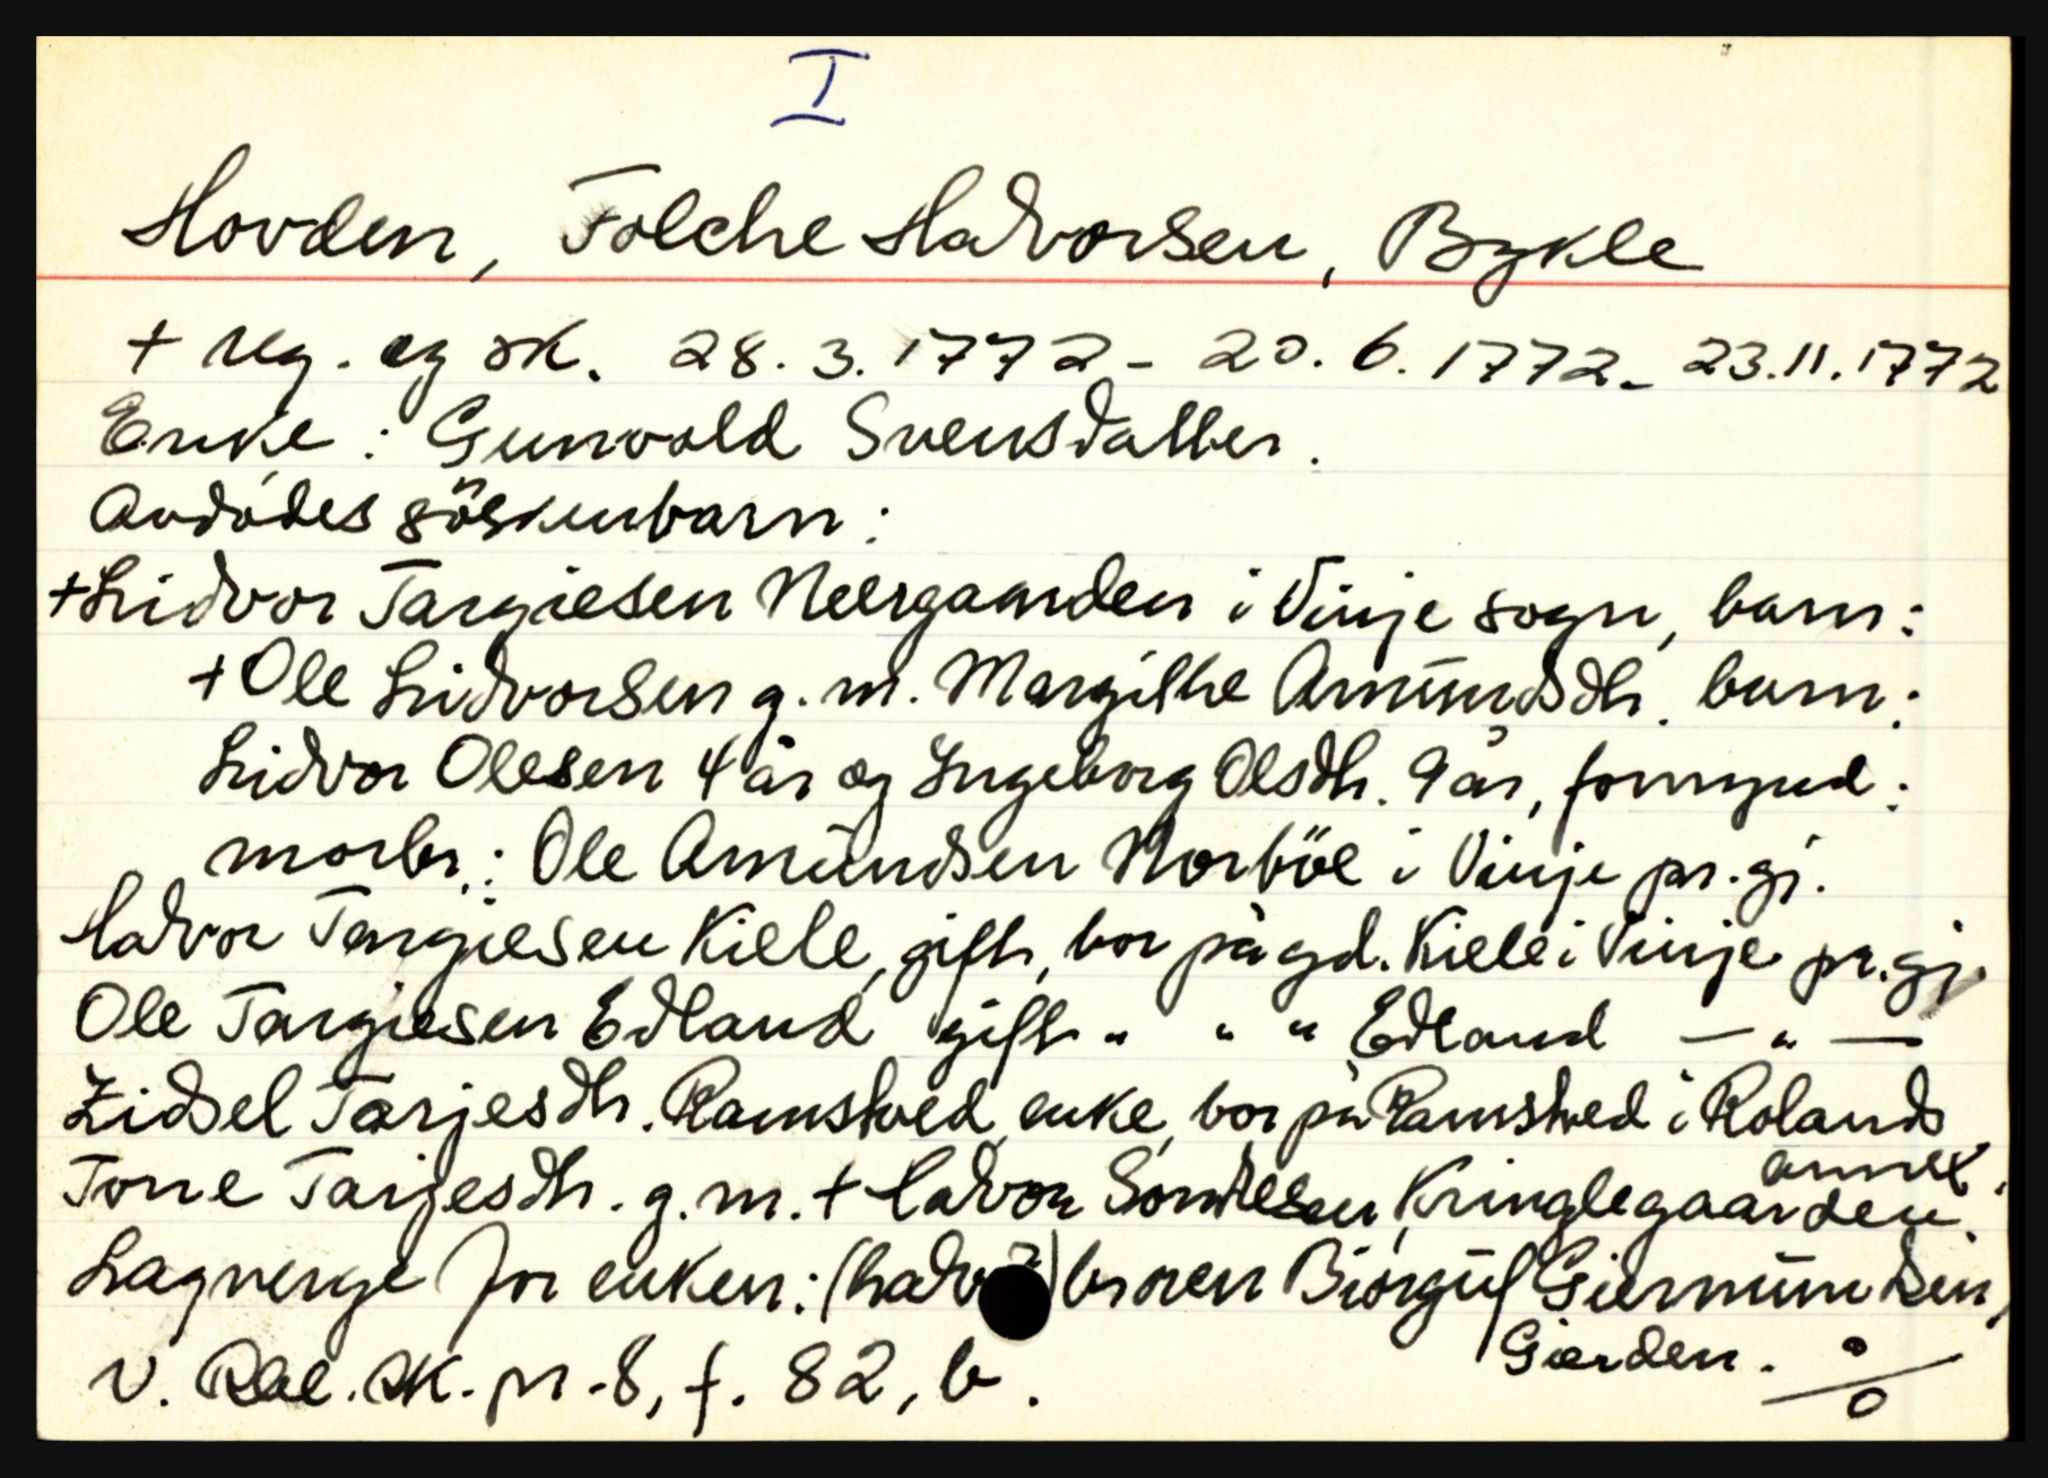 I
Hovden, Folche Halvorsen, Bykle
+ reg. og sk. 28.3.1772 - 20.6.1772 - 23.11.1772
Enke: Gunvold Svensdatter.
Avdødes söskenbarn:
+ Lidvor Targiesen Neergaarden i Vinje sogn, barn:
+ Ole Lidvorsen g.m. Margithe Amündsdtr. barn:
Lidvor Olesen 4 år og Ingeborg Olsdtr. 9 år, formynd:
morbr.: Ole Amündsen Norböe i Vinje pr.gj.
Halvor Targiesen Kiele, gift, bor på gd. Kiele i Vinje pr.gj.
Ole Targiesen Edland gift " " " Edland — " —
Zidsel Tarjesdtr. Ramstved, enke, bor på Ramstved i Rolands
annex.
Tone Tarjesdtr. g.m. + Halvor Kringlegaarden.
Lagverge for enken: (halv) broren Biørgül Giermündsen,
Gierden. %
v. Rbl. sk. pr. 8, f. 82, b.